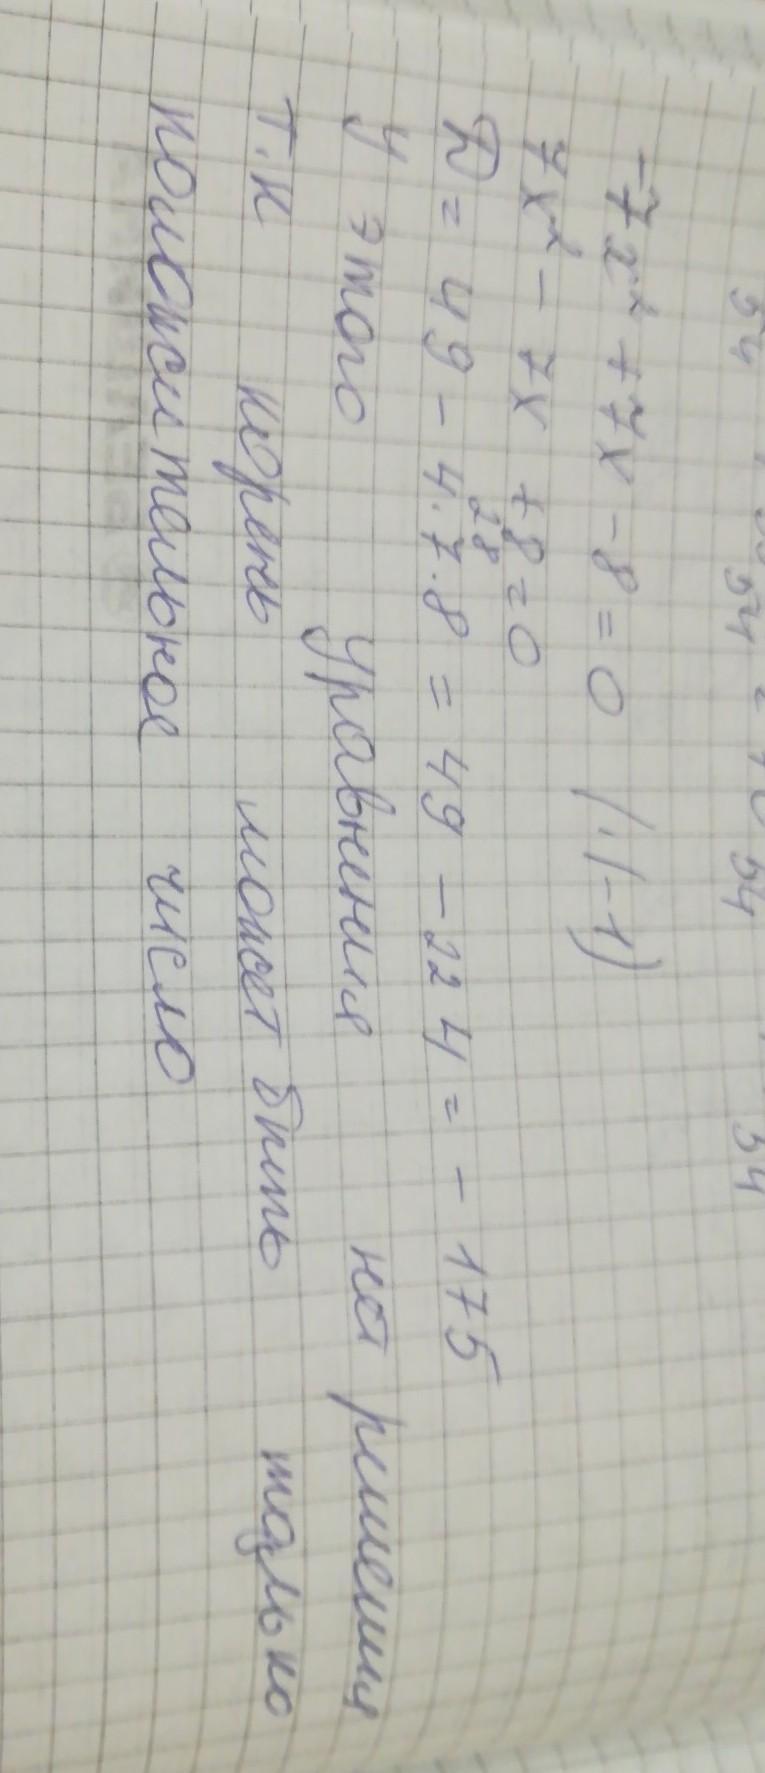 -7x² + 7x - 8 = 0 / · (-1)
7x² - 7x + 8 = 0
28
D = 49 - 4·7·8 = 49 - 224 = - 175
У этого уравнения нет решения
т.к корень может быть только
положительное число